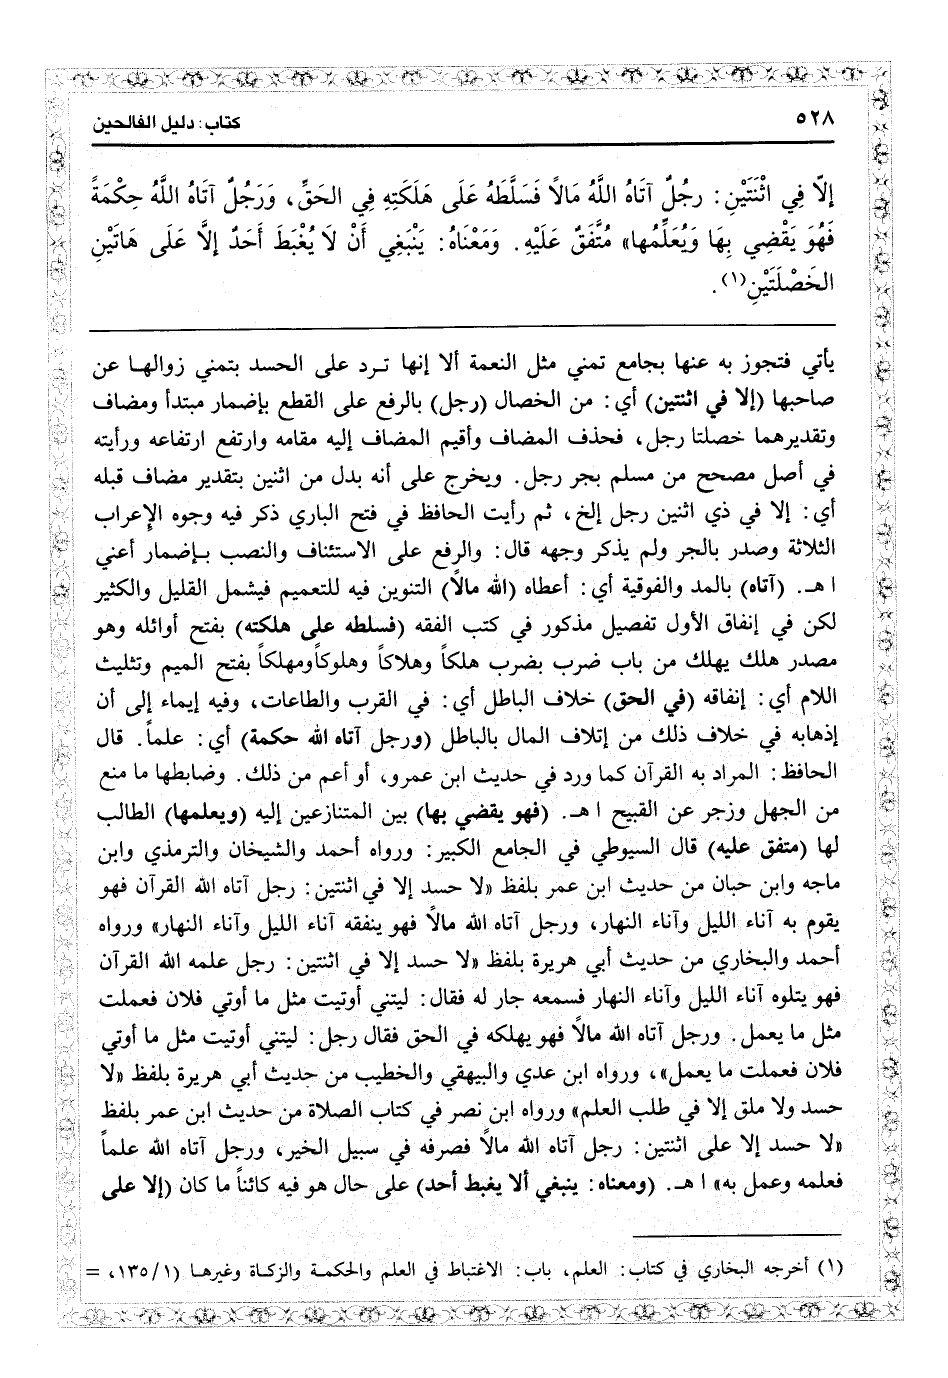 ٥٢٨
كتاب: دليل الفالحين
إلّا فِي اثْنَتَيْنِ: رجُلٌ آتَاهُ اللَّهُ مَالاً فَسَلَّطَهُ عَلَى هَلَكَتِهِ فِي الحَقِّ، وَرَجُلٌ آتَاهُ اللَّهُ حِكْمَةً
فَهُوَ يَقْضِي بِهَا وَيُعَلِّمُها» مُتَّفَقٌ عَلَيْهِ. وَمَعْنَاهُ: يَنْبَغِي أَنْ لَا يُغْبَطَ أَحَدٌ إلاَّ عَلَى هَاتَيْنِ
الخَصْلَتَيْنِ(١).
يأتي فتجوز به عنها بجامع تمني مثل النعمة ألا إنها ترد على الحسد بتمني زوالها عن
صاحبها (إلا في اثنتين) أي: من الخصال (رجل) بالرفع على القطع بإضمار مبتدأ ومضاف
وتقديرهما خصلتا رجل، فحذف المضاف وأقيم المضاف إليه مقامه وارتفع ارتفاعه ورأيته
في أصل مصحح من مسلم بجر رجل. ويخرج على أنه بدل من اثنين بتقدير مضاف قبله
أي: إلا في ذي اثنين رجل إلخ، ثم رأيت الحافظ في فتح الباري ذكر فيه وجوه الإعراب
الثلاثة وصدر بالجر ولم يذكر وجهه قال: والرفع على الاستئناف والنصب بإضمار أعني
ا هـ. (آتاه) بالمد والفوقية أي: أعطاه (الله مالاً) التنوين فيه للتعميم فيشمل القليل والكثير
لكن في إنفاق الأول تفصيل مذكور في كتب الفقه (فسلطه على هلكته) بفتح أوائله وهو
مصدر هلك يهلك من باب ضرب يضرب هلكاً وهلاكاً وهلوكاًومهلكاً بفتح الميم وتثليث
اللام أي: إنفاقه (في الحق) خلاف الباطل أي: في القرب والطاعات، وفيه إيماء إلى أن
إذهابه في خلاف ذلك من إتلاف المال بالباطل (ورجل آتاه الله حكمة) أي: علماً. قال
الحافظ: المراد به القرآن كما ورد في حديث ابن عمرو، أو أعم من ذلك. وضابطها ما منع
من الجهل وزجر عن القبيح ا هـ. (فهو يقضي بها) بين المتنازعين إليه (ويعلمها) الطالب
لها (متفق عليه) قال السيوطي في الجامع الكبير: ورواه أحمد والشيخان والترمذي وابن
ماجه وابن حبان من حديث ابن عمر بلفظ «لا حسد إلا في اثنتين: رجل آتاه الله القرآن فهو
يقوم به آناء الليل وآناء النهار، ورجل آتاه الله مالاً فهو ينفقه آناء الليل وآناء النهار» ورواه
أحمد والبخاري من حديث أبي هريرة بلفظ «لا حسد إلا في اثنتين: رجل علمه الله القرآن
فهو يتلوه آناء الليل وآناء النهار فسمعه جار له فقال: ليتني أوتيت مثل ما أوتي فلان فعملت
مثل ما يعمل. ورجل آتاه الله مالاً فهو يهلكه في الحق فقال رجل: ليتني أوتيت مثل ما أوتي
فلان فعملت ما يعمل»، ورواه ابن عدي والبيهقي والخطيب من حديث أبي هريرة بلفظ «لا
حسد ولا ملق إلا في طلب العلم» ورواه ابن نصر في كتاب الصلاة من حديث ابن عمر بلفظ
«لا حسد إلا على اثنتين: رجل آتاه الله مالاً فصرفه في سبيل الخير، ورجل آتاه الله علماً
فعلمه وعمل به» ا هـ. (ومعناه: ينبغي ألا يغبط أحد) على حال هو فيه كائناً ما كان (إلا على
(١) أخرجه البخاري في كتاب: العلم، باب: الاغتباط في العلم والحكمة والزكاة وغيرها (١٣٥/١، =